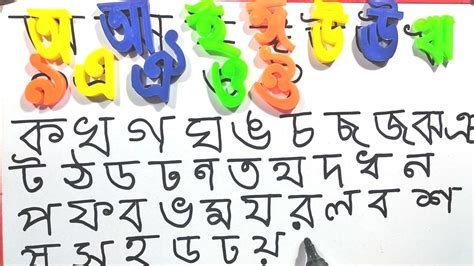 অ আ ই ঈ উ ঊ ঋ
ঌ এ ঐ ও ঔ
ক খ গ ঘ ঙ চ ছ জ ঝ ঞ
ট ঠ ড ঢ ণ ত থ দ ধ ন
প ফ ব ভ ম য র ল ব শ
ষ স হ ড ঢ য়